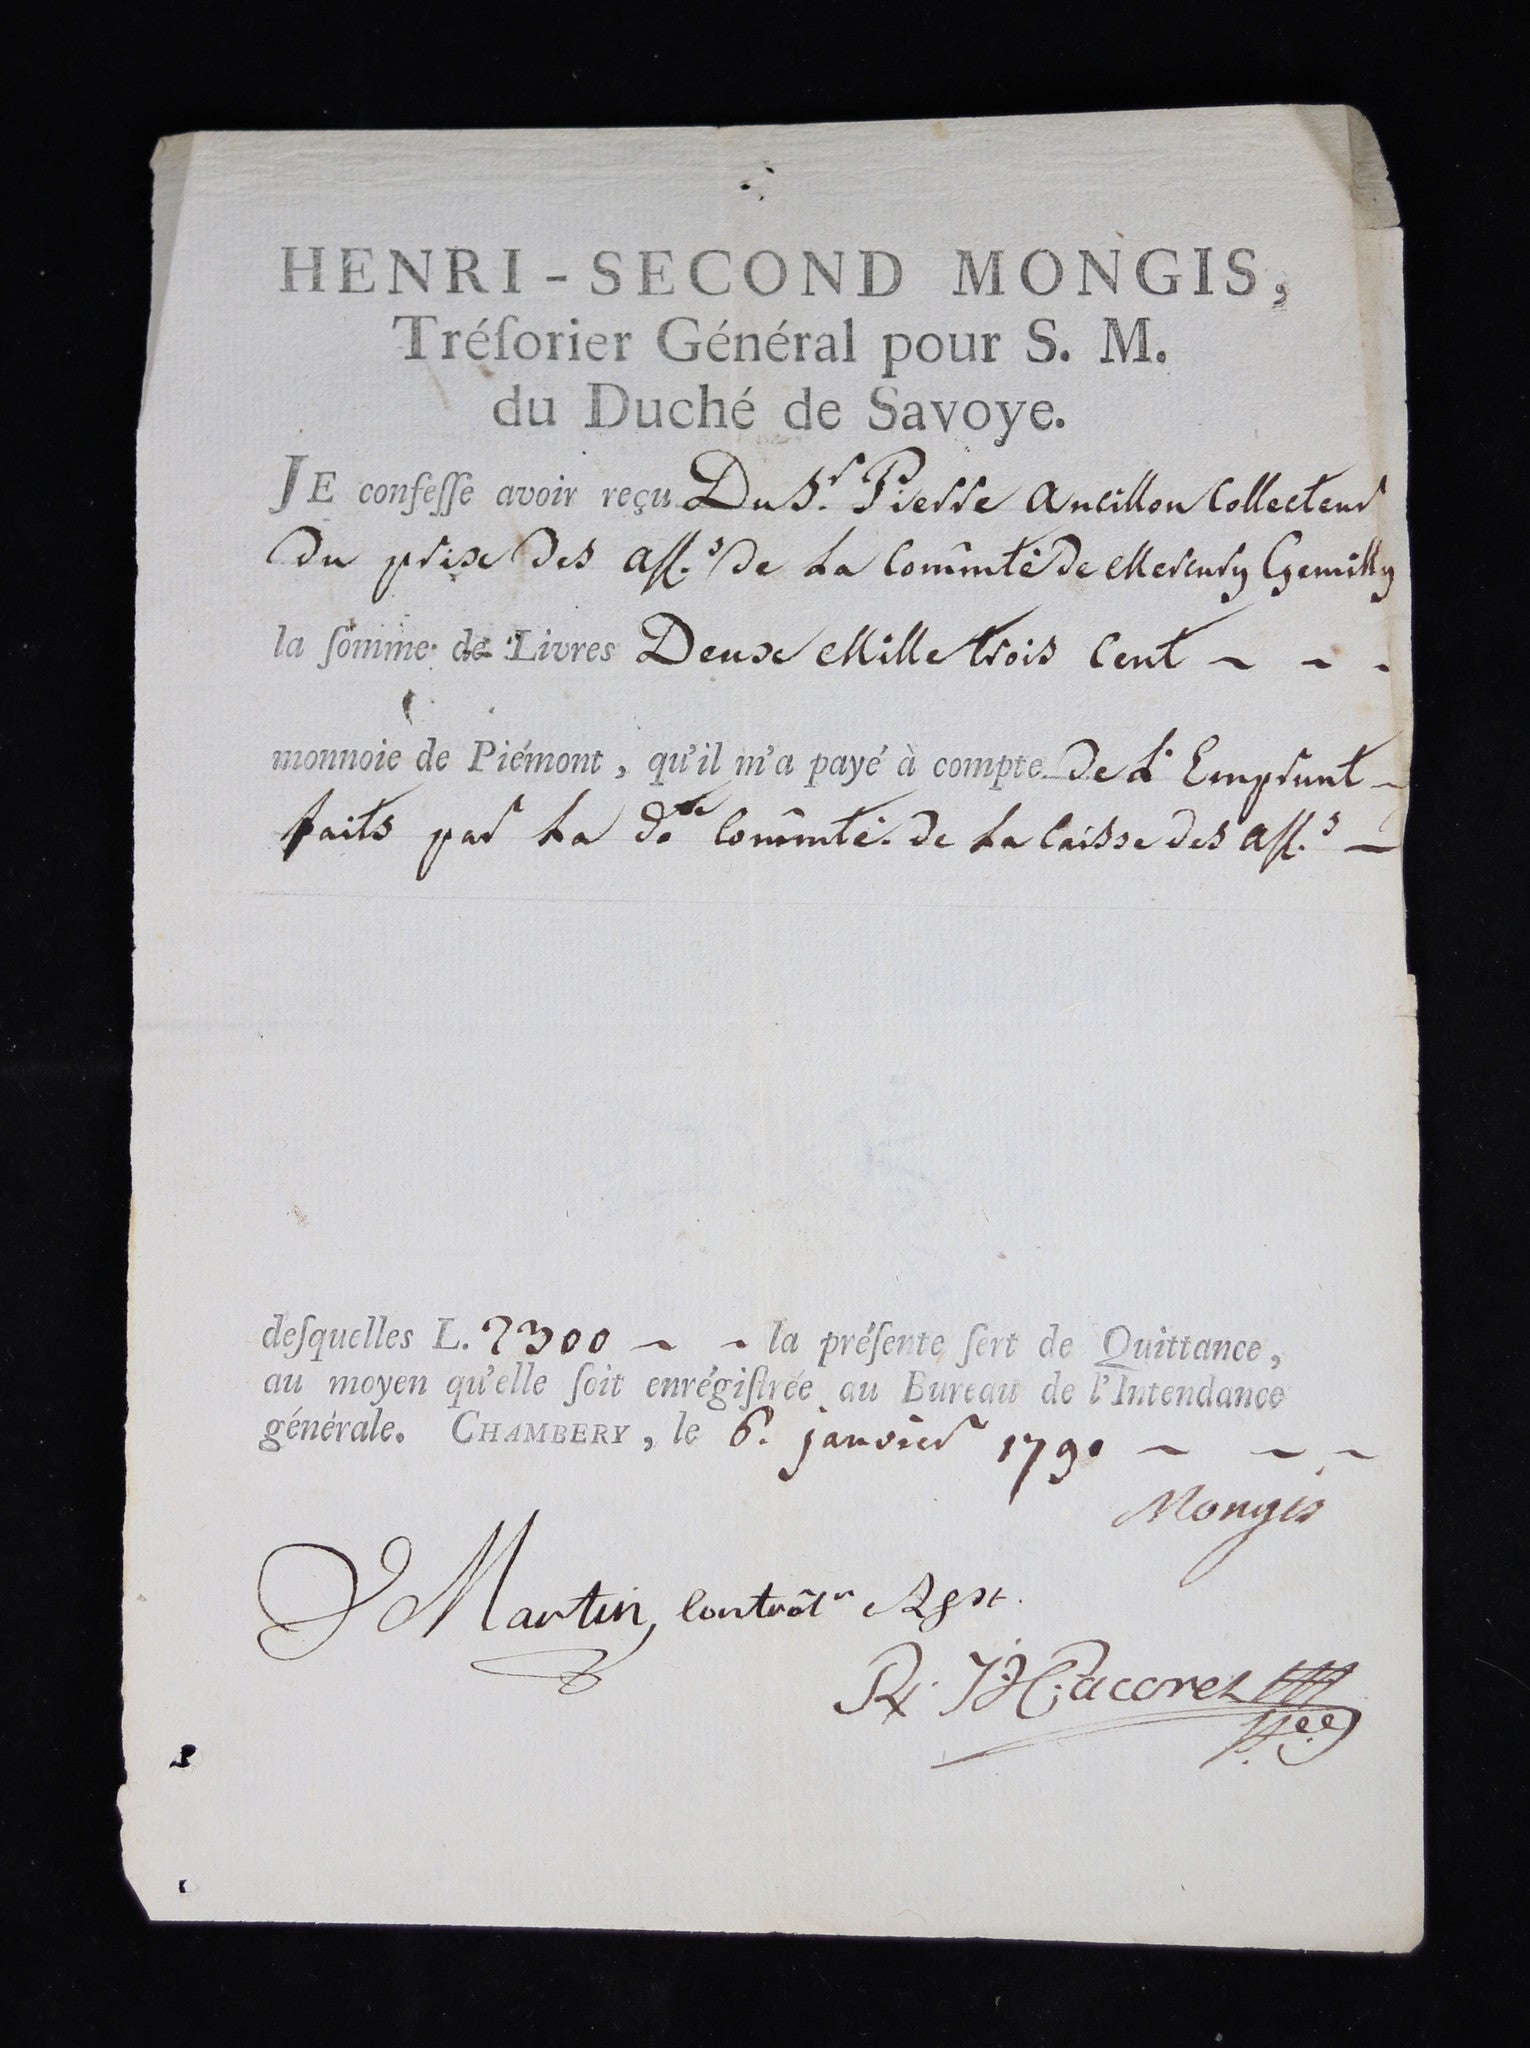 HENRI-SECOND MONGIS,
Tréſorier Général pour S. M.
du Duché de Savoye.
JE confeſſe avoir reçu Du Sr. Pierre Ancillon Collecteur
Du prix Des aff.s De La Commté De Mercury Gemilly
la ſomme de Livres Deux Mille trois Cent
monnoie de Piémont, qu'il m'a payé à compte De L'Emprunt
faits par La de. Commté. De La Caisse Des aff.s
deſquelles L. 2300 la préſente ſert de Quittance,
au moyen qu'elle ſoit enrégiſtrée au Bureau de l'Intendance
générale. CHAMBERY, le 6. janvier 1790
Mongis
Martin, Contrôlr
Pacoret